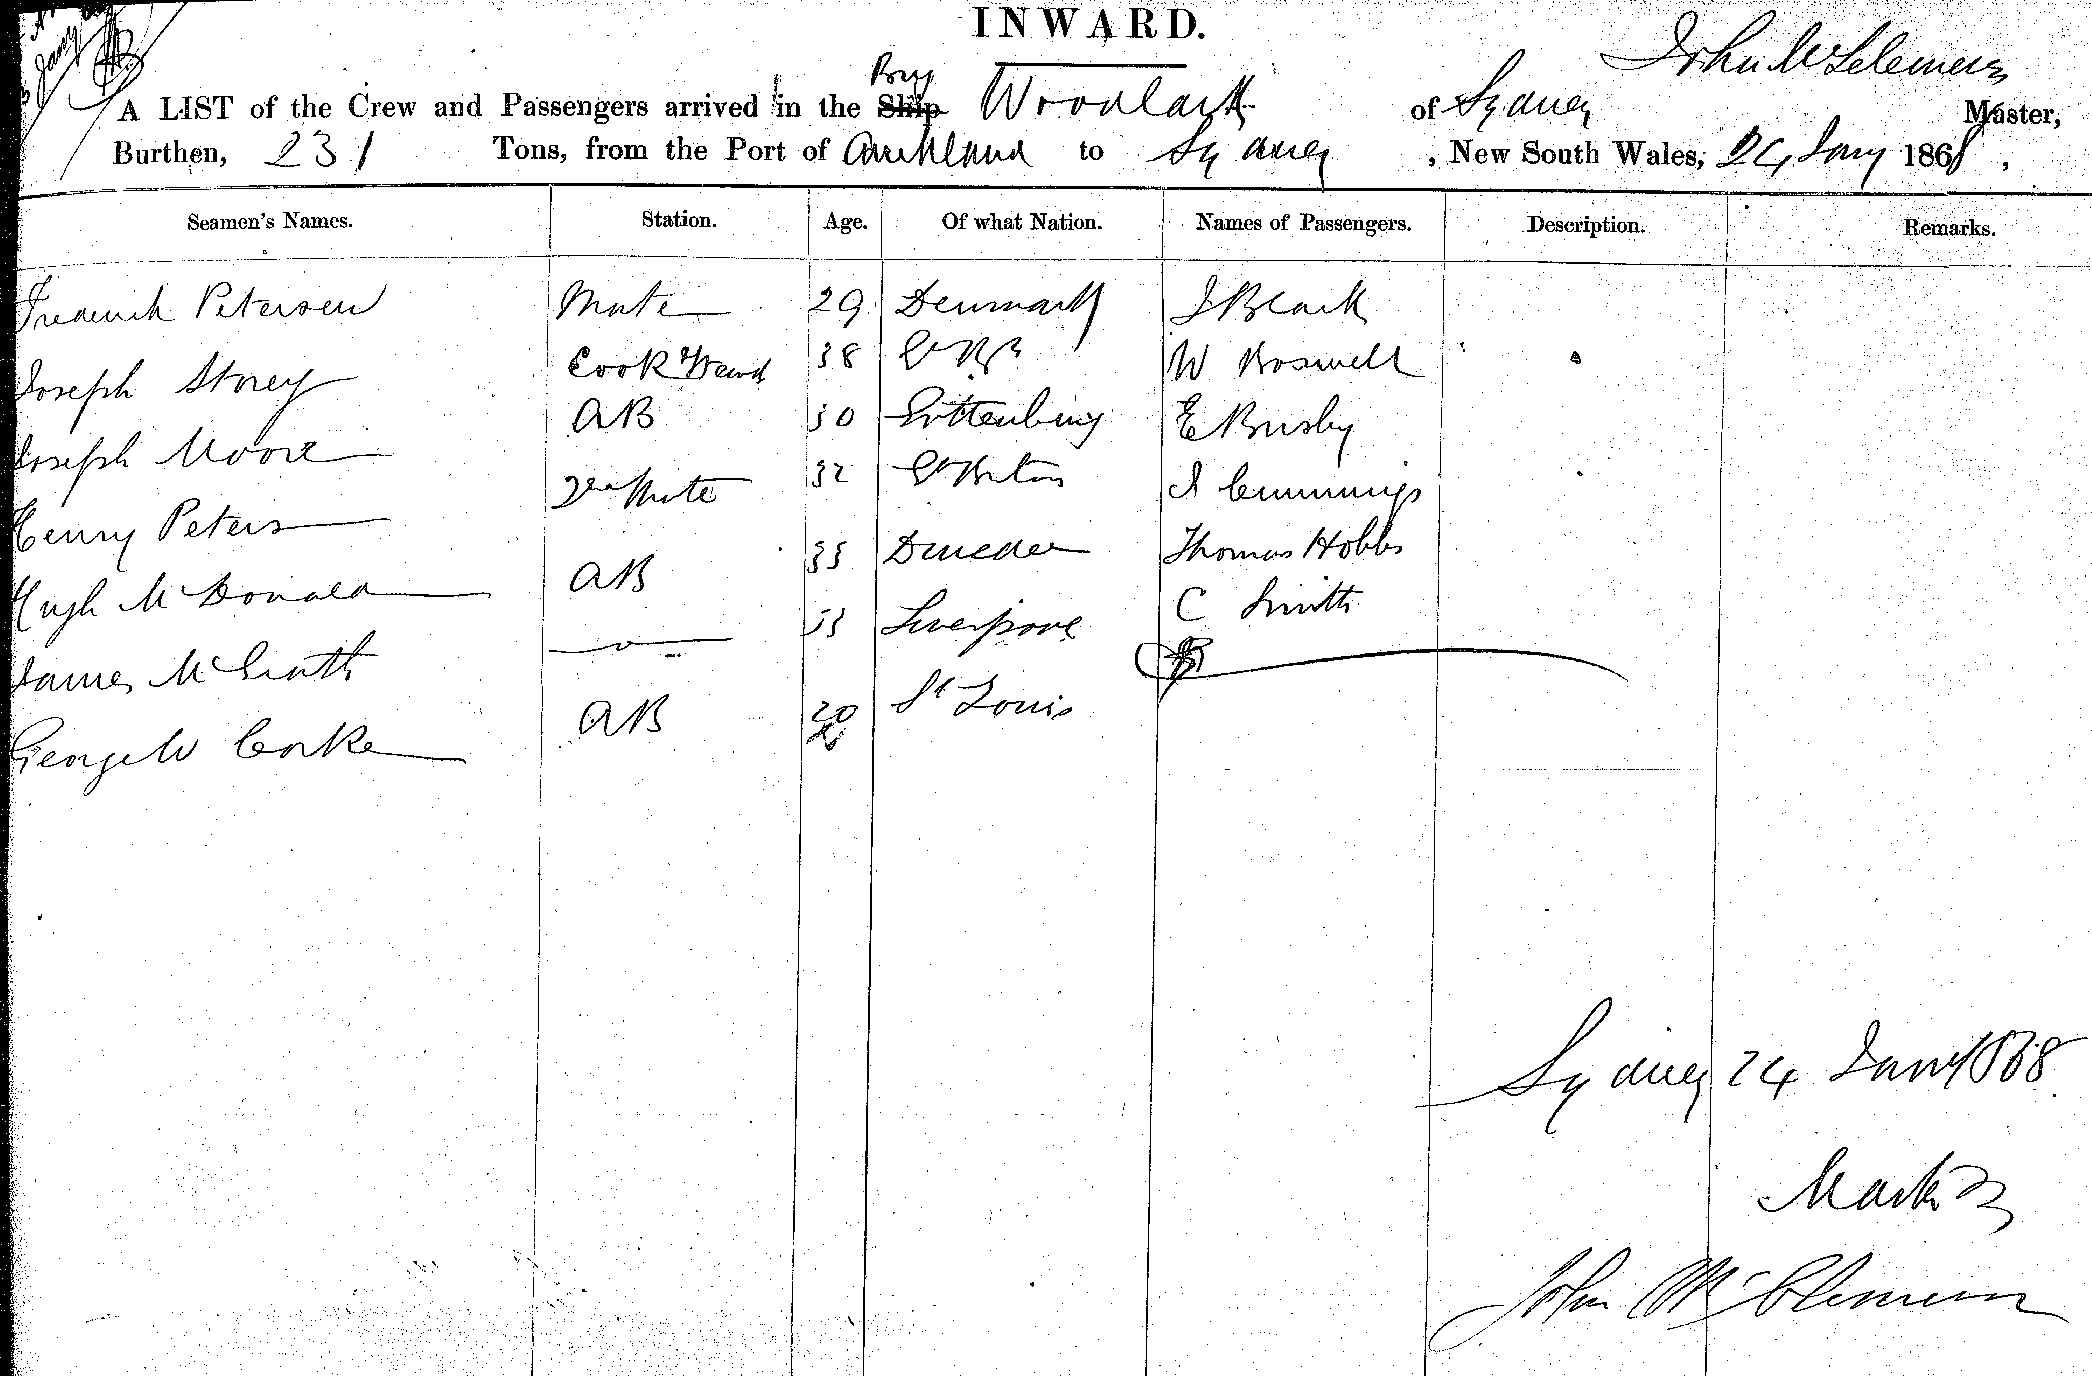 INWARD.
John McClemens
A LIST of the Crew and Passengers arrived in the Ship Brig Woodlark of Sydney Master,
Burthen, 231 Tons, from the Port of Auckland to Sydney , New South Wales, 24 Jany 1868 .
Seamen's Names. Station. Age. Of what Nation. Names of Passengers. Description. Remarks.
Frederick Petersen Mate 29 Denmark J Black
Joseph Storey Cook 38 W Boswell
Joseph Moore AB 30 Gottenburg E Busby
Henry Peters 2nd Mate 32 Gt Britain J Cummings
Hugh McDonald AB 33 Thomas Hobbs
James McGrath Liverpool C Smith
George W Corke AB 20 St Louis
Sydney 24 Jany 1868
John McClemens